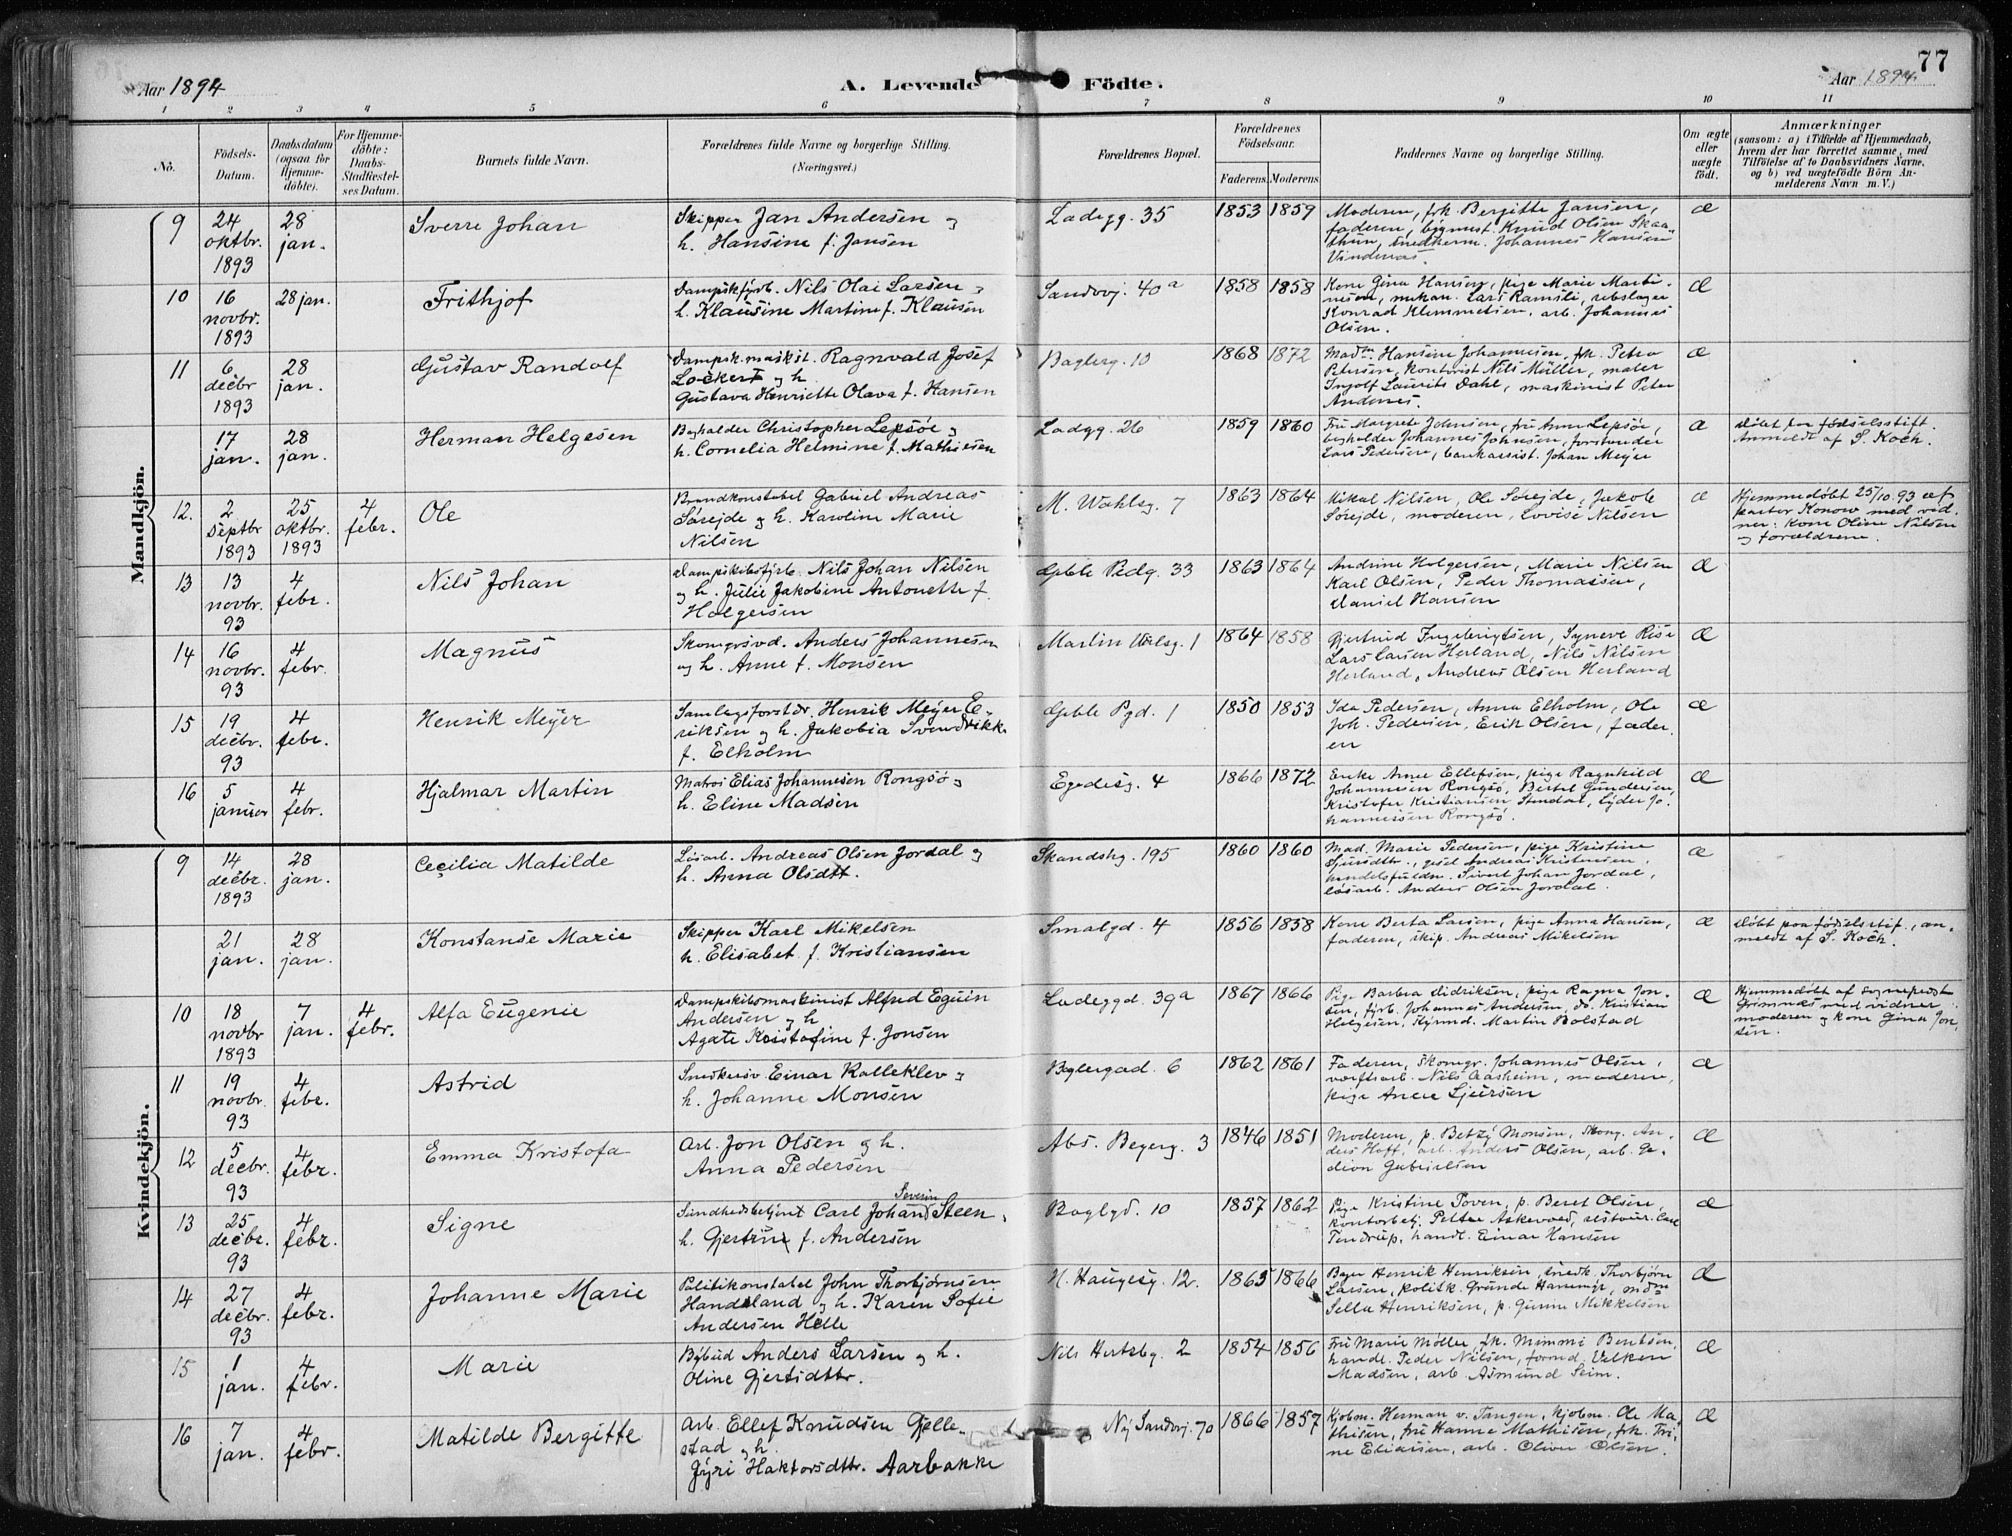 77
Aar 1894
A. Levende Födte.
Aar 1894
1 2 3 4 5 6 7 8 9 10 11
No.
Födsels-Datum.
Daabsdatum (ogsaa for Hjemme-döbte).
For Hjemme-döbte: Daabs-Stadfæstel-ses Datum.
Barnets fulde Navn.
Forældrenes fulde Navne og borgerlige Stilling.
(Næringsvei.)
Forældrenes Bopæl.
Forældrenes Födselsaar.
Faderens. Moderens.
Faddernes Navne og borgerlige Stilling.
Om ægte eller uægte födt.
Anmærkninger
(sansom: a) i Tilfælde af Hjemmedaab,
hvem der har forrettet samme, med
Tilföielse af to Daabsvidners Navne,
og b) ved uægtefödte Börn An-
melderens Navn m. V.)
Mandkjön.
9 24 oktbr. 1893 28 jan. Sverre Johan
Skipper Jan Andersen og
h. Hansine f. Jansen
Ladegg. 35 1853 1859
Moderen, frk Bergitte Jansen,
faderen, bygmest. Knud Olsen Skaa-
thun, snedkerm. Johannes Hansen
Vindenes. æ
10 16 novbr. 1893 28 jan. Frithjof
Dampskfyrb. Nils Olai Larsen og
h. Klausine Martine f. Klausen
Sandvg. 40a 1858 1858
Kone Gina Hansen, pige Marie Marti-
nesen, mekan. Lars Ramsli, rebslager
Konrad Klemmetsen, arb. Johannes
Olsen. æ
11 6 decbr 1893 28 jan. Gustav Randolf
Dampsk.maskst. Ragnvald Josef
Lockert og h.
Gustava Henriette Olava f. Hansen
Baglerg. 10 1868 1872
Madm Hansine Johannesen, frk. Petra
Petersen, kontorist Nils Müller, maler
Ingolf Laurits Dahl, maskinist Peter
Andersen. æ
17 jan. 28 jan. Herman Helgesen
Bogholder Christopher Lepsöe og
h. Cornelia Helmine f. Mathiesen
Ladgg. 26 1859 1860
Fru Margrete Johnsen, fru Anna Lepsöe,
bogholder Johannes Johnsen, forstander
Lars Pedersen, bankassist. Johan Meyer æ
Döbt paa fødselsstift.
Anmeldt af S. Koch.
12. 2 septbr 1893 25 oktbr. 1893 4 febr. Ole
Brandkonstabel Gabriel Andreas
Sörejde og h. Karoline Marie
Nilsen
M. Wahlsg. 7 1863 1864
Mikal Nilsen, Ole Sörejde, Jakob
Sörejde, moderen, Lovise Nilsen æ
Hjemmedøbt 25/10.93 af
pastor Konow med vid-
ner: kone Oline Nilsen
og forældrene.
13 13 novbr. 93 4 febr. Nils Johan
Dampskibsfyrb. Nils Johan Nilsen
og h. Julie Jakobine Antonette f.
Holgersen
Gble Pedg. 33 1863 1864
Andrine Holgersen, Marie Nilsen
Karl Olsen, Peder Thomassen,
Daniel Hansen æ
14 16 novbr. 93 4 febr. Magnus
Skomgrsvd. Anders Johannesen
og h. Anne f. Monsen
Martin Valsg. 1 1864 1858
Gjertrud Ingebrigtsen, Syneve Rise
Lars Larsen Herland, Nils Nilsen
Herland, Andreas Olsen Herland æ
15 19 decbr. 93 4 febr. Henrik Meyer
Samlagsforstdr. Henrik Meyer E-
riksen og h. Jakobia Svendrikke
f. Elholm
Gble Pgd. 1 1850 1853
Ida Pedersen, Anna Elholm, Ole
Joh. Pedersen, Erik Olsen, fader-
en æ
16 5 januar 4 febr. Hjalmar Martin
Matros Elias Johannesen Rongsö og
h. Eline Madsen
Egedisg. 4 1866 1872
Enke Anne Ellefsen, pige Ragnhild
Johannesen Rongsö, Bertel Gundersen,
Kristofer Kristiansen Stendal, Lyder Jo-
hannessen Rongsö. æ
Kvindekjön.
9 14 decbr. 1893 28 jan. Cecilia Matilde
Løsarb. Andreas Olsen Jordal og
h. Anna Olsdtt.
Skandshg. 195 1860 1860
Mad. Marie Pedersen, pige Kristine
Sjursdtr., gsel Andreas Kristensen,
handelsfuldm. Sivert Johan Jordal,
løsarb. Anders Olsen Jordal. æ
21 jan. 28 jan. Konstanse Marie
Skipper Karl Mikelsen
h. Elisabet f. Kristiansen
Smalgd. 4 1856 1858
Kone Berta Larsen, pige Anna Hansen,
faderen, skip. Andreas Mikelsen æ
Döbt paa fødselsstif., an-
meldt af S. Koch.
10 18 novbr 1893 7 jan. 4 febr. Alfa Eugenie
Dampskibsmaskinist Alfred Eguin
Andersen og h
Agate Kristofine f. Jonsen
Ladeggd. 39a 1867 1866
Pige Barbra Didriksen, pige Ragna Jon-
sen, fyrb. Johannes Andersen, do. Kristian
Helgesen, styrmd. Martin Bolstad æ
Hjemmedöbt af sogneprest
Grimnes med vidner
moderen og kone Gina Jon-
sen.
11 19 novbr. 93 4 febr. Astrid
Snedkersv. Einar Kalleklev og
h. Johanne Monsen
Baglergad. 6 1862 1861
Faderen, skomgr. Johannes Olsen,
værftsarb. Nils Aasheim, moderen,
pige Anna Sjursen æ
12 5 decbr. 93 4 febr. Emma Kristofa
Arb. Jon Olsen og h.
Anna Pedersen
Abs. Beyerg. 3 1846 1851
Moderen, p. Betzy Monsen, Skomg. An-
ders Hoff, arb. Anders Olsen, arb. Ge-
dion Gabrielsen æ
13 25 decbr. 93 4 febr. Signe
Sundhedsbetjent Carl Johan Severin Steen,
h. Gjertrue f. Andersen
Baglgd. 10 1857 1862
Pige Kristine Poven, p. Beret Olsen,
kontorbetj. Petter Askevold, restaur. Carl
Tendrup, handl. Einar Hansen æ
14 27 decbr. 93 4 febr. Johanne Marie
Politikonstabel John Thorbjørnsen
Handeland og h. Karen Sofie
Andersen Helle
H. Haugesg. 12. 1865 1866
Bager Henrik Henriksen, snedk. Thorbjørn
Larsen, politik. Grunde Hannevig, mdm
Sella Henriksen, p. Gurine Mikkelsen æ
15 1 jan. 4 febr. Marie
Bybud Anders Larsen og h.
Oline Gjersdtr.
Nils Hertzbg. 2 1854 1856
Fru Marie Møller, frk. Mimmi Bentsen,
handl. Peder Nilsen, formd. Velken
Madsen, arb. Asmund Seim. æ
16 7 jan. 4 febr. Matilde Bergitte
Arb. Ellef Knudsen Gjelle-
stad og h.
Gyri Haktorsdtr. Aarbakke
Ny Sandvg. 70 1866 1857
Kjøbm. Herman v. Tangen, kjøbm. Ole Ma-
thisen, fru Hanne Mathisen, frk. Tri-
ne Eliassen, arb. Oliver Olsen. æ